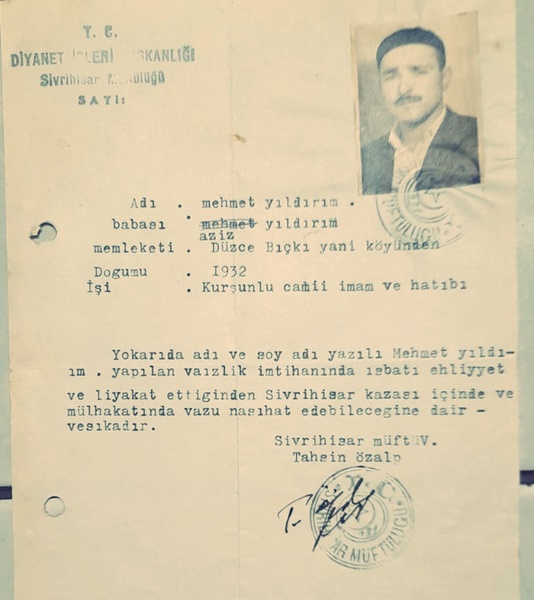 T. C.
DİYANET İŞLERİ BAŞKANLIĞI
Sivrihisar Müftülüğü
SAYI:
Adı . mehmet yıldırım .
babası . mehmet yıldırım
aziz
memleketi . Düzce Bıçkı yani köyünden
Dogumu . I932
İşi . Kurşunlu camii imam ve hatıbı
Yokarıda adı ve soy adı yazılı Mehmet yıldı-
ım . yapılan vaızlik imtihanında isbatı ehliyyet
ve liyakat ettiginden Sivrihisar kazası içinde ve
mülhakatında vazu nasıhat edebilecegine dair -
vesıkadır.
Sivrihisar müftüV.
Tahsin özalp
MÜFTÜLÜĞÜ
MÜFTÜLÜĞÜ